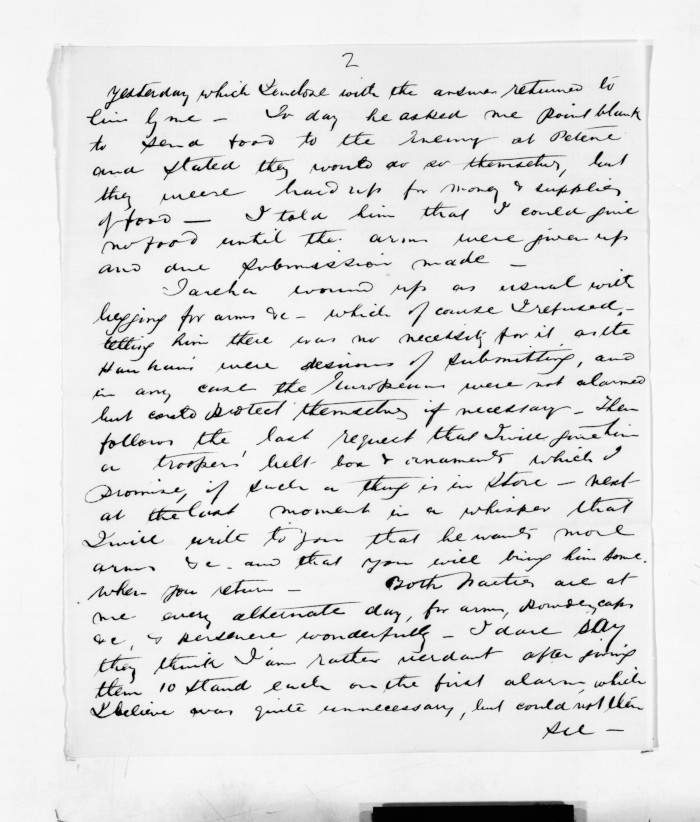 2
yesterday which I enclose with the answer returned to
him by me — To day he asked me point blank
to send food to the Enemy at Petane
and stated they would do so themselves, but
they weere hard up for money & supplies
of food — I told him that I could give
no food until the arms were given up
and due submission made —
Tareha wound up as usual with
begging for arms &c — which of course I refused, —
telling him there was no necessity for it as the
Hauhaus were desirous of submitting, and
in any case the Europeans were not alarmed
but could protect themselves if necessary — Then
follows the last request that I will give him
a troopers' belt - box & ornaments which I
promise, if such a thing is in Store — next
at the last moment in a whisper that
I will write to you that he wants more
arms &c. and that you will bring him some.
when you return — Both Parties are at
me every alternate day, for arms, powder, caps
&c, & persevere wonderfully — I dare say
they think I am rather verdant after giving
them 10 stand each on the first alarm, which
I believe was quite unnecessary, but could not then
see —